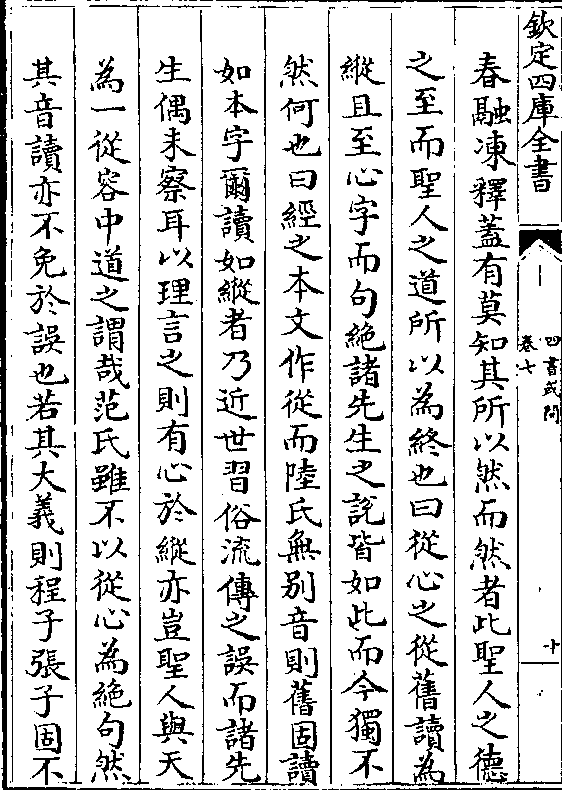 欽定四庫全書
四書或問
卷七
十
春融凍釋蓋有莫知其所以然而然者此聖人之德
之至而聖人之道所以為終也曰從心之從舊讀為
縱且至心字而句絶諸先生之説皆如此而今獨不
然何也曰經之本文作從而陸氏無别音則舊固讀
如本字爾讀如縱者乃近世習俗流傳之誤而諸先
生偶未察耳以理言之則有心於縱亦豈聖人與天
為一從容中道之謂哉范氏雖不以從心為絶句然
其音讀亦不免於誤也若其大義則程子張子固不